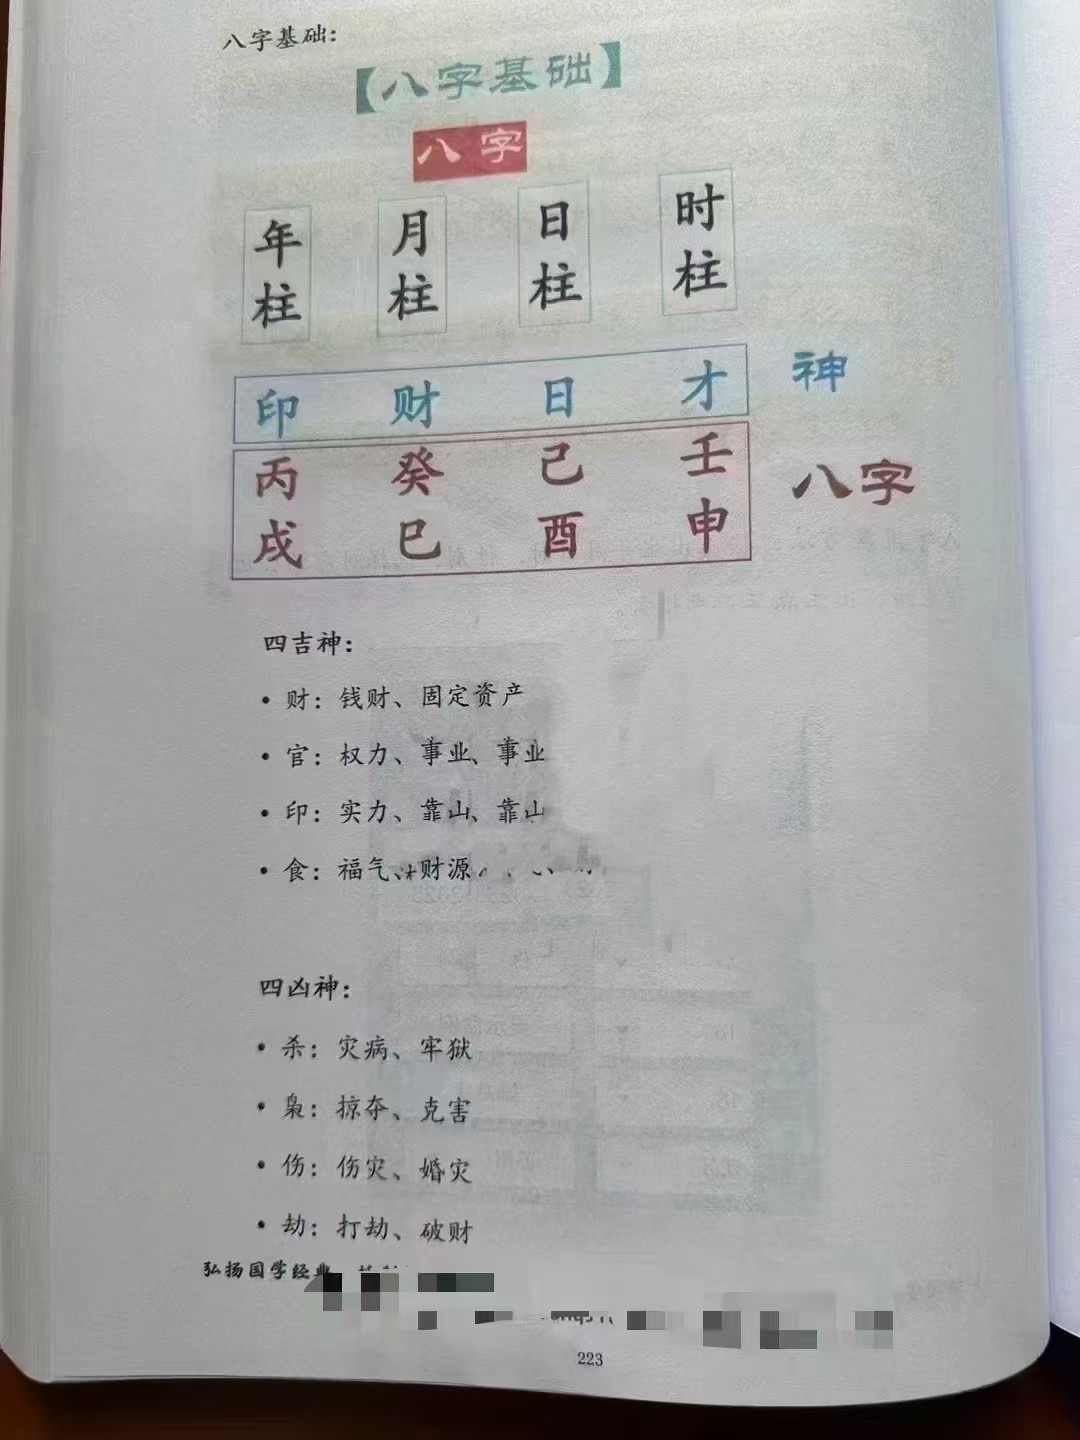 八字基础：
【八字基础】
八字
年柱 月柱 日柱 时柱
印 财 日 才 神
丙 癸 己 壬 八字
戌 巳 酉 申
四吉神：
• 财：钱财、固定资产
• 官：权力、事业、事业
• 印：实力、靠山、靠山
• 食：福气、财源
四凶神：
• 杀：灾病、牢狱
• 枭：掠夺、克害
• 伤：伤灾、婚灾
• 劫：打劫、破财
弘扬国学经典
223